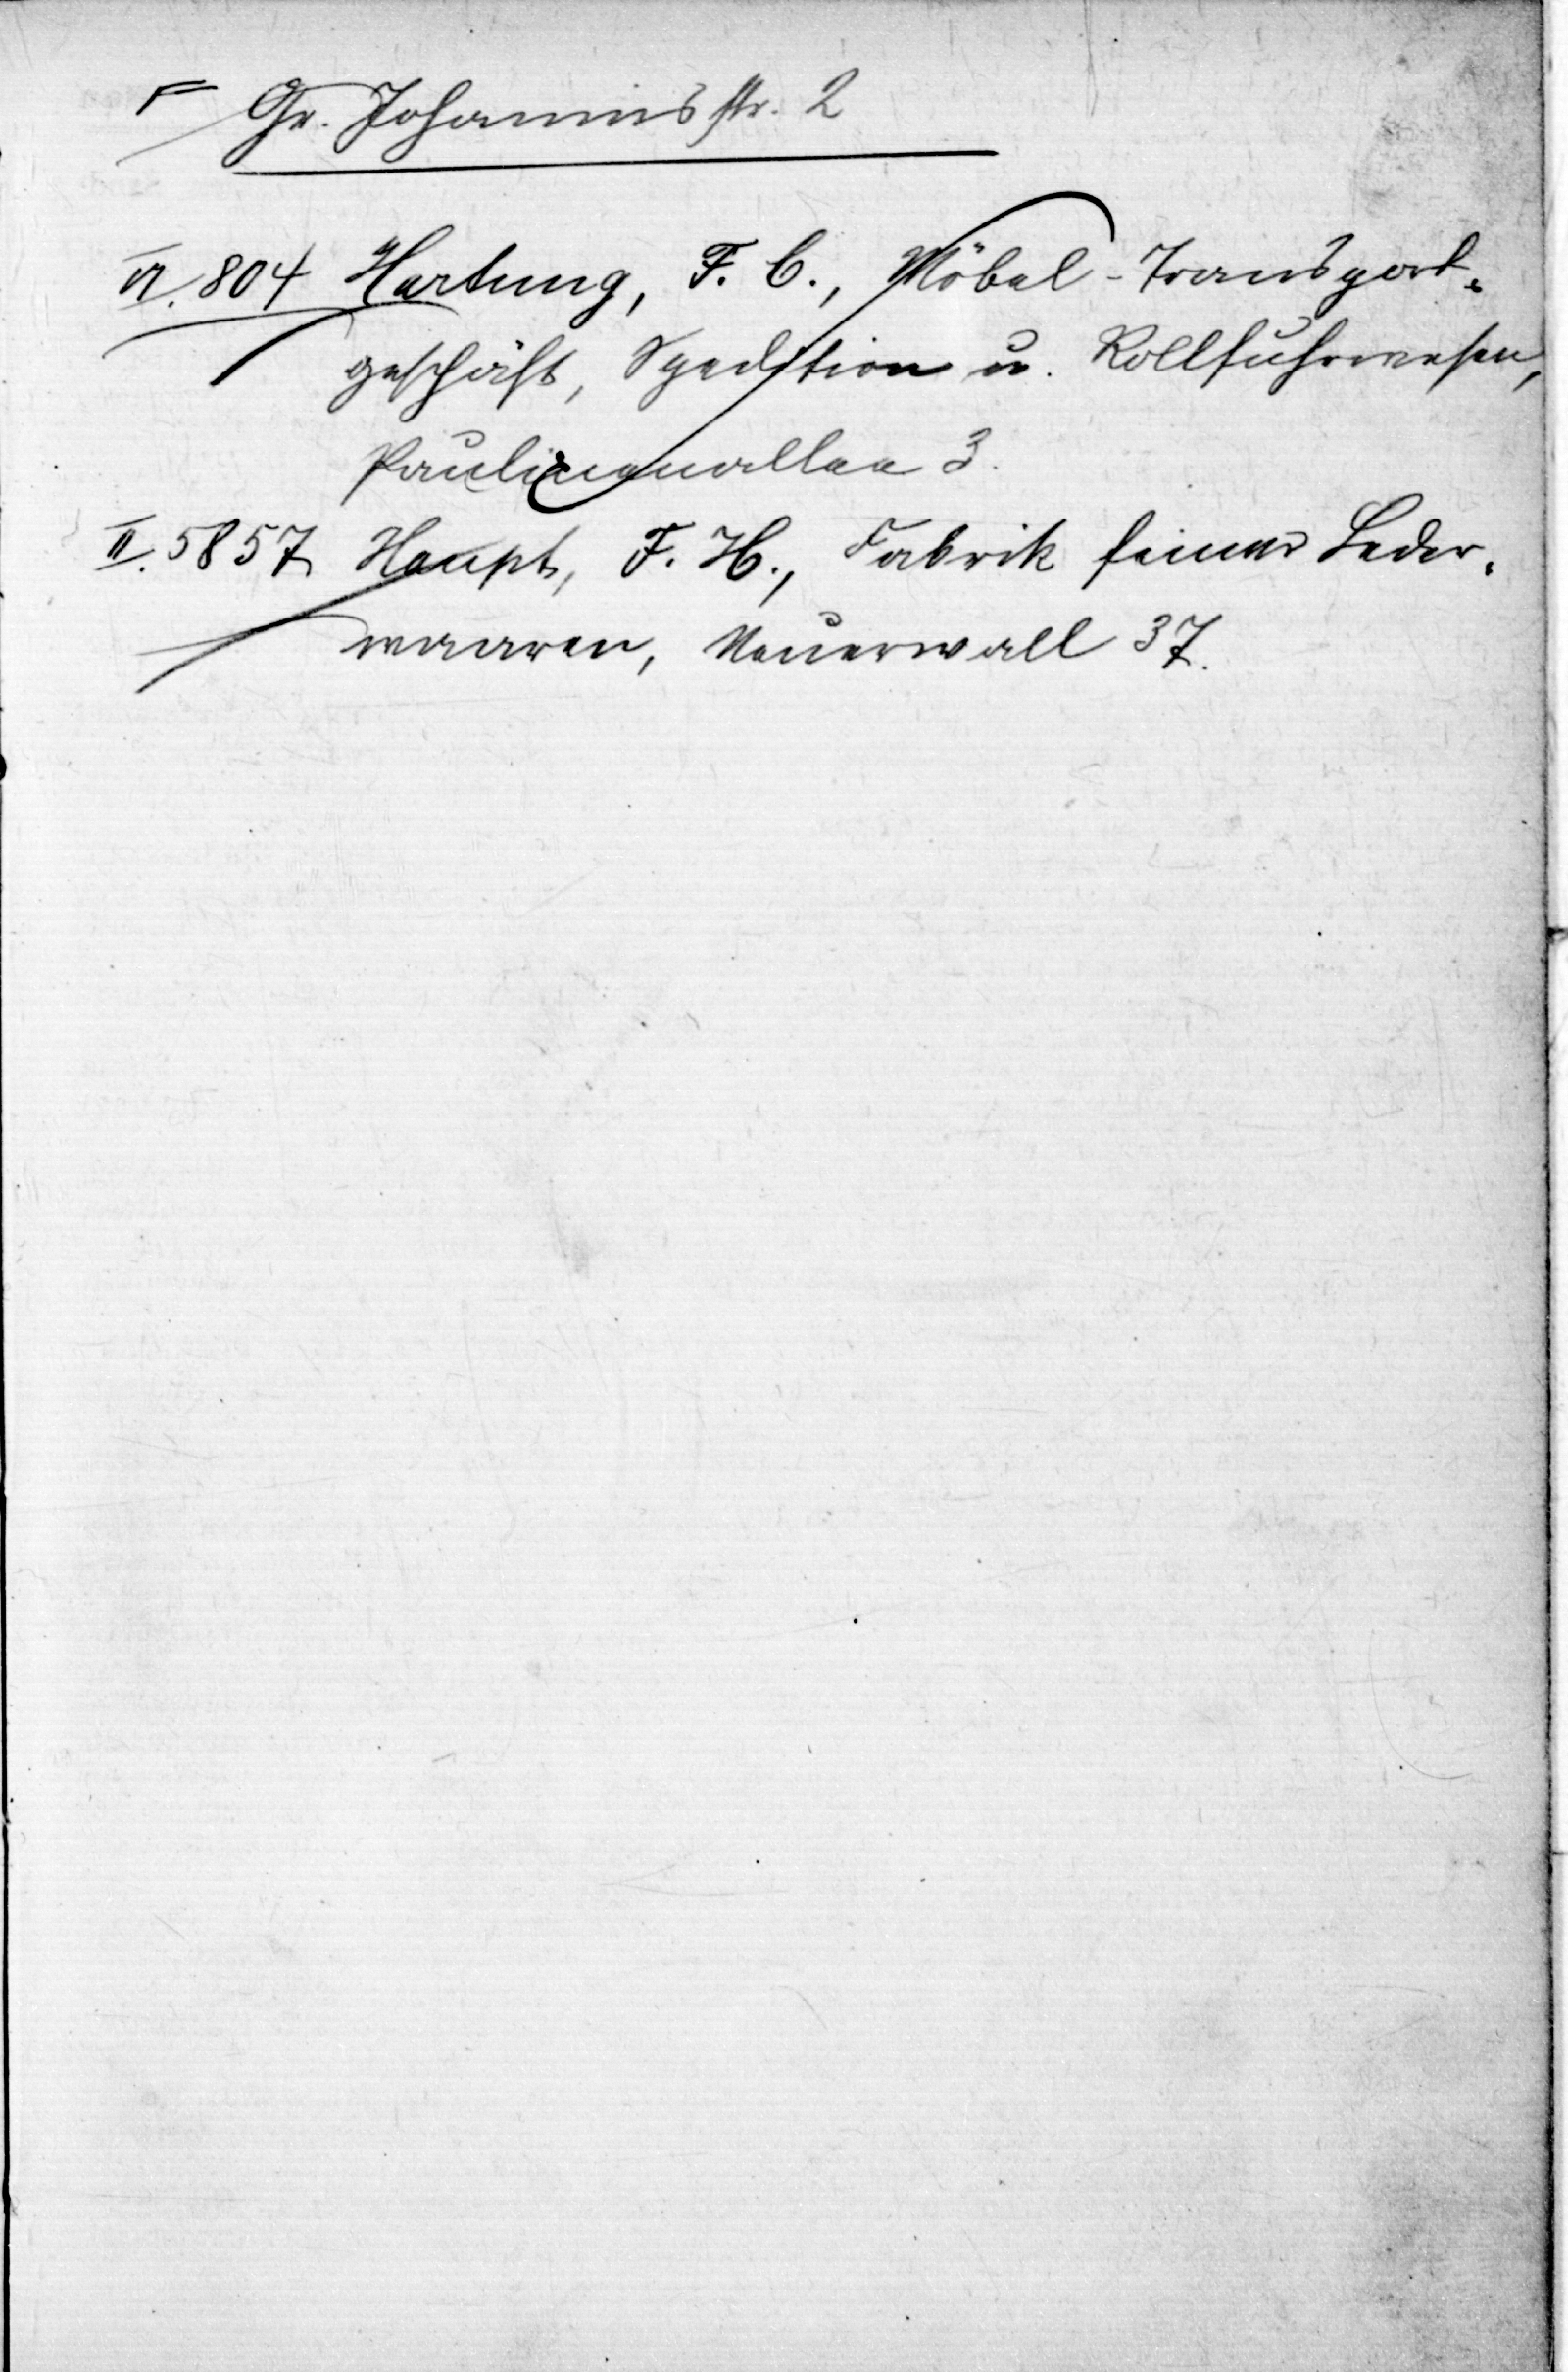 Gr. Johannisstr. 2
VI. 804 Hartung, F. C., Möbel-Transport-
geschäft, Spedition u. Rollfuhrwesen,
Paulinenallee 3.
II. 5857 Haupt, F. H., Fabrik feiner Leder-
waaren, Neuerwall 37.